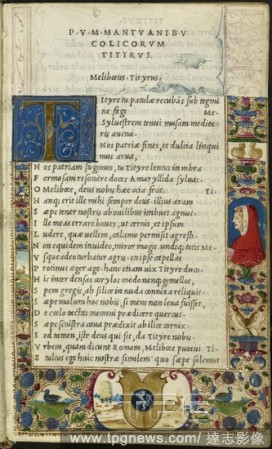 P. V. M. MANTVANI BV
COLICORVM
TITYRVS.
Meliboeus. Tityrus.
T Ityre tu patulæ recubãs sub tegmi
ne fagi Me.
Syluestrem tenui musam medita-
ris auena.
Nos patriæ fines, et dulcia linqui
mus arua,
N os patriam fugimus, tu Tityre lentus in umbra
F ormosam resonare doces Amaryllida syluas.
O Meliboee, deus nobis hæc ocia fecit. Ti.
N anq; erit ille mihi semper deus: illius aram
S æpe tener nostris ab ouilibus imbuet agnus.
I lle meas errare boues, ut cernis, et ipsum
L udere, quæ uellem, calamo permisit agresti.
N on equidem inuideo, miror magis: undiq; totis Me.
V sque adeo turbatur agris. en ipse capellas
P rotinus æger ago. hanc etiam uix Tityre duco.
H ic inter densas corylos modo nanq; gemellos,
S pem gregis, ah silice in nuda connixa reliquit.
S æpe malum hoc nobis, si mens non læua fuisset,
D e cælo tactas memini prædicere quercus.
S æpe sinistra caua prædixit ab ilice cornix.
S ed tamen, iste deus qui sit, da Tityre nobis.
V rbem, quam dicunt Romam, Meliboee putaui Ti.
S tultus ego huic nostræ similem: quo sæpe solemus
www.tpgnews.com / 達志影像